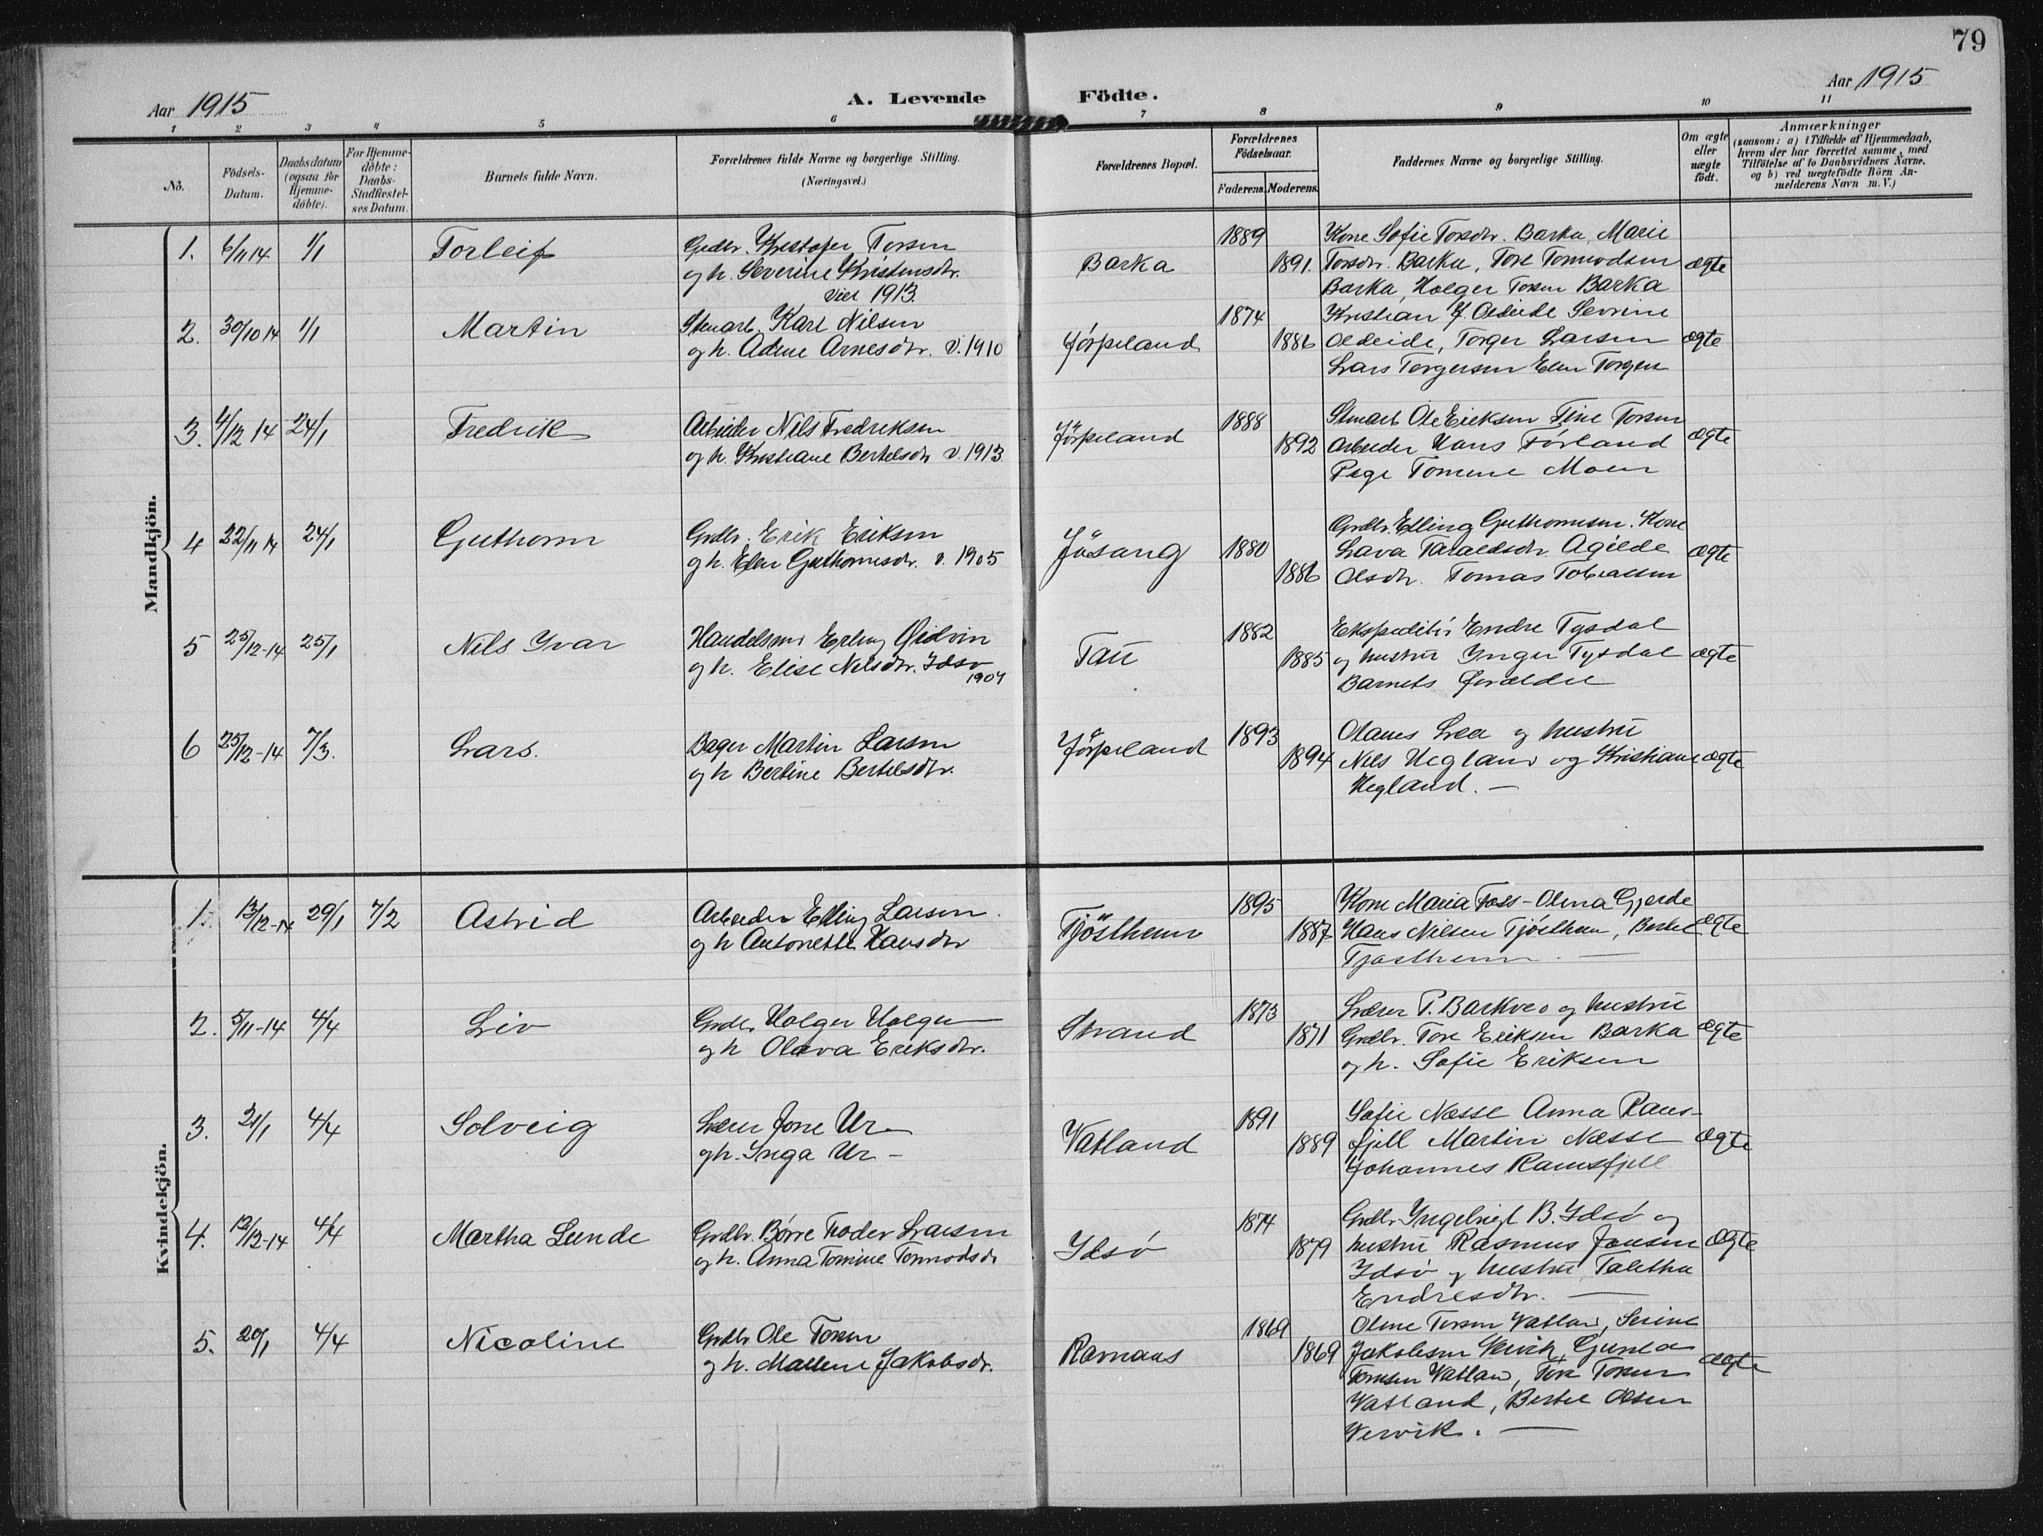 79
Aar 1915
A. Levende Födte.
Aar 1915
1 2 3 4 5 6 7 8 9 10 11
No.
Födsels-Datum.
Daabsdatum (ogsaa for Hjemme-döbte).
For Hjemme-döbte: Daabs-Stadfæstel-ses Datum.
Barnets fulde Navn.
Forældrenes fulde Navne og borgerlige Stilling.
(Næringsvei.)
Forældrenes Bopæl.
Forældrenes Födselsaar.
Faderens. Moderens.
Faddernes Navne og borgerlige Stilling.
Om ægte eller uægte födt.
Anmærkninger
(saasom: a) i Tilfælde af Hjemmedaab,
hvem der har forrettet samme, med
Tilföielse af to Daabsvidners Navne.
og b) ved uægtefödte Börn An-
melderens Navn m. V.)
Mandkjön.
1. 6/11 14 1/1 Torleif
Grdbr. Kristofer Torsen
og h. Severine Kristensdtr.
viet 1913.
Barka
1889
1891.
Kone Sofie Torsdtr. Barka, Marie
Torsdtr. Barka, Tore Tormodsen
Barka, Holger Torsen Barka
ægte
2. 30/10 14 1/1 Martin
Stenarb. Karl Nilsen
og h. Adine Arnesdtr. v. 1910
Jörpeland
1874
1886
Kristian J. Oldeide Sevrine
Oldeide, Torger Larsen
Lars Torgersen Elen Torgers
ægte
3. 4/12 14 24/1 Fredrik
Arbeider Nils Fredriksen
og h. Kristiane Bertelsdtr v. 1913
Jörpeland
1888
1892
Stenarb Ole Eriksen Tine Torsen
Arbeider Hans Förland
Pege Tomine Moen
ægte
4 22/11 14 24/1 Guthorm
Grdbr. Erik Eriksen
og h. Elen Guthormsdtr. v. 1905
Jösang
1880
1886
Grdbr. Elling Guthormsen. Kone
Lava Taraldsdtr. Agilde
Olsdtr. Tomas Tobiassen
ægte
5 25/12-14 25/1 Nils Ivar
Handelsm Erling Gidvin
og h. Elise Nilsdtr. Idsö
1907
Tau
1882
1885
Ekspeditör Endre Tysdal
og hustru Inger Tysdal
Barnets forældre
ægte
6 25/12-14 7/3. Lars.
Bager Martin Larsen
og h Bertine Bertelsdtr.
Jörpeland
1893
1894
Olaus Lea og hustru
Nils Hegland og Kristiane
Hegland. —
ægte
Kvindekjön.
1. 13/12-14 29/1 7/2 Astrid
Arbeider Elling Larsen.
og h Antonette Hansdtr
Tjöstheim
1895
1887
Kone Maria Foss - Olena Gjerde
Hans Nilsen Tjöstheim, Bertel
Tjostheim. —
ægte
2. 5/11-14 4/4 Liv
Grdbr. Holger Holgersen
og h Olava Eriksdtr.
Strand
1873
1871
Lærer P. Barkved og hustru
Grdbr. Tore Eriksen Barka
og h. Sofie Eriksen
ægte
3. 21/1 4/4 Solveig
Lærer Jone Ur —
og h. Inga Ur —
Vatland
1891
1889
Sofie Næsse Anna Rams-
fjell Martin Næsse
Johannes Ramsfjell
ægte
4. 12/12-14 4/4 Martha Lunde
Grdbr. Börre Toder Larsen
og h. Anna Tomine Tormodsdtr
Idsö
1874
1879
Grdbr Ingebrigt B. Idsö og
hustru Rasmus Jonsen
Idsö og hustru Taletha
Endresdtr. —
ægte
5. 20/1 4/4 Nicoline
Grdbr Ole Torsen
og h. Mallene Jakobsdtr.
Ramaas
1869
1869
Oline Torsen Vatland, Serine
Jakobsen Vervik, Gunla
Tomsen Vatland, Tore Torsen
Vatland, Bertel Olsen
Vervik. —
ægte